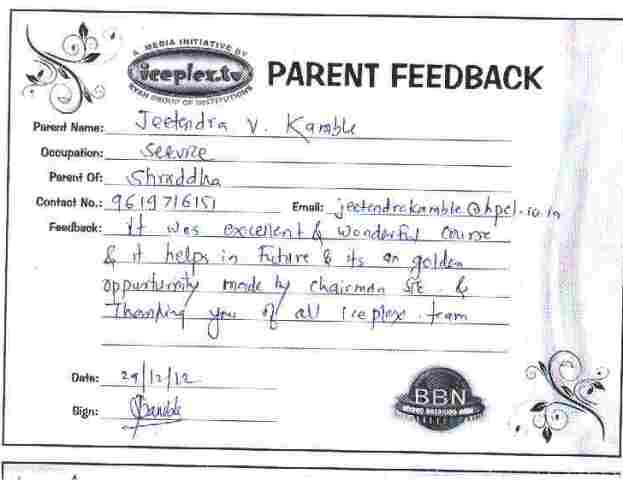 A MEDIA INITIATIVE BY
iceplex.tv
KYAN GROUP OF INSTITUTIONS
PARENT FEEDBACK
Parent Name: Jeetendra V. Kamble
Occupation: Service
Parent Of: Shraddha
Contact No.: 9619716151 Email: jeetendrakamble@hpcl.co.in
Feedback: It was excellent & wonderful course
& it helps in Future & its an golden
oppurturnity made by chairman Sir. &
Thanking you of all iceplex team
Date: 29/12/12
Sign: Kamble
BBN